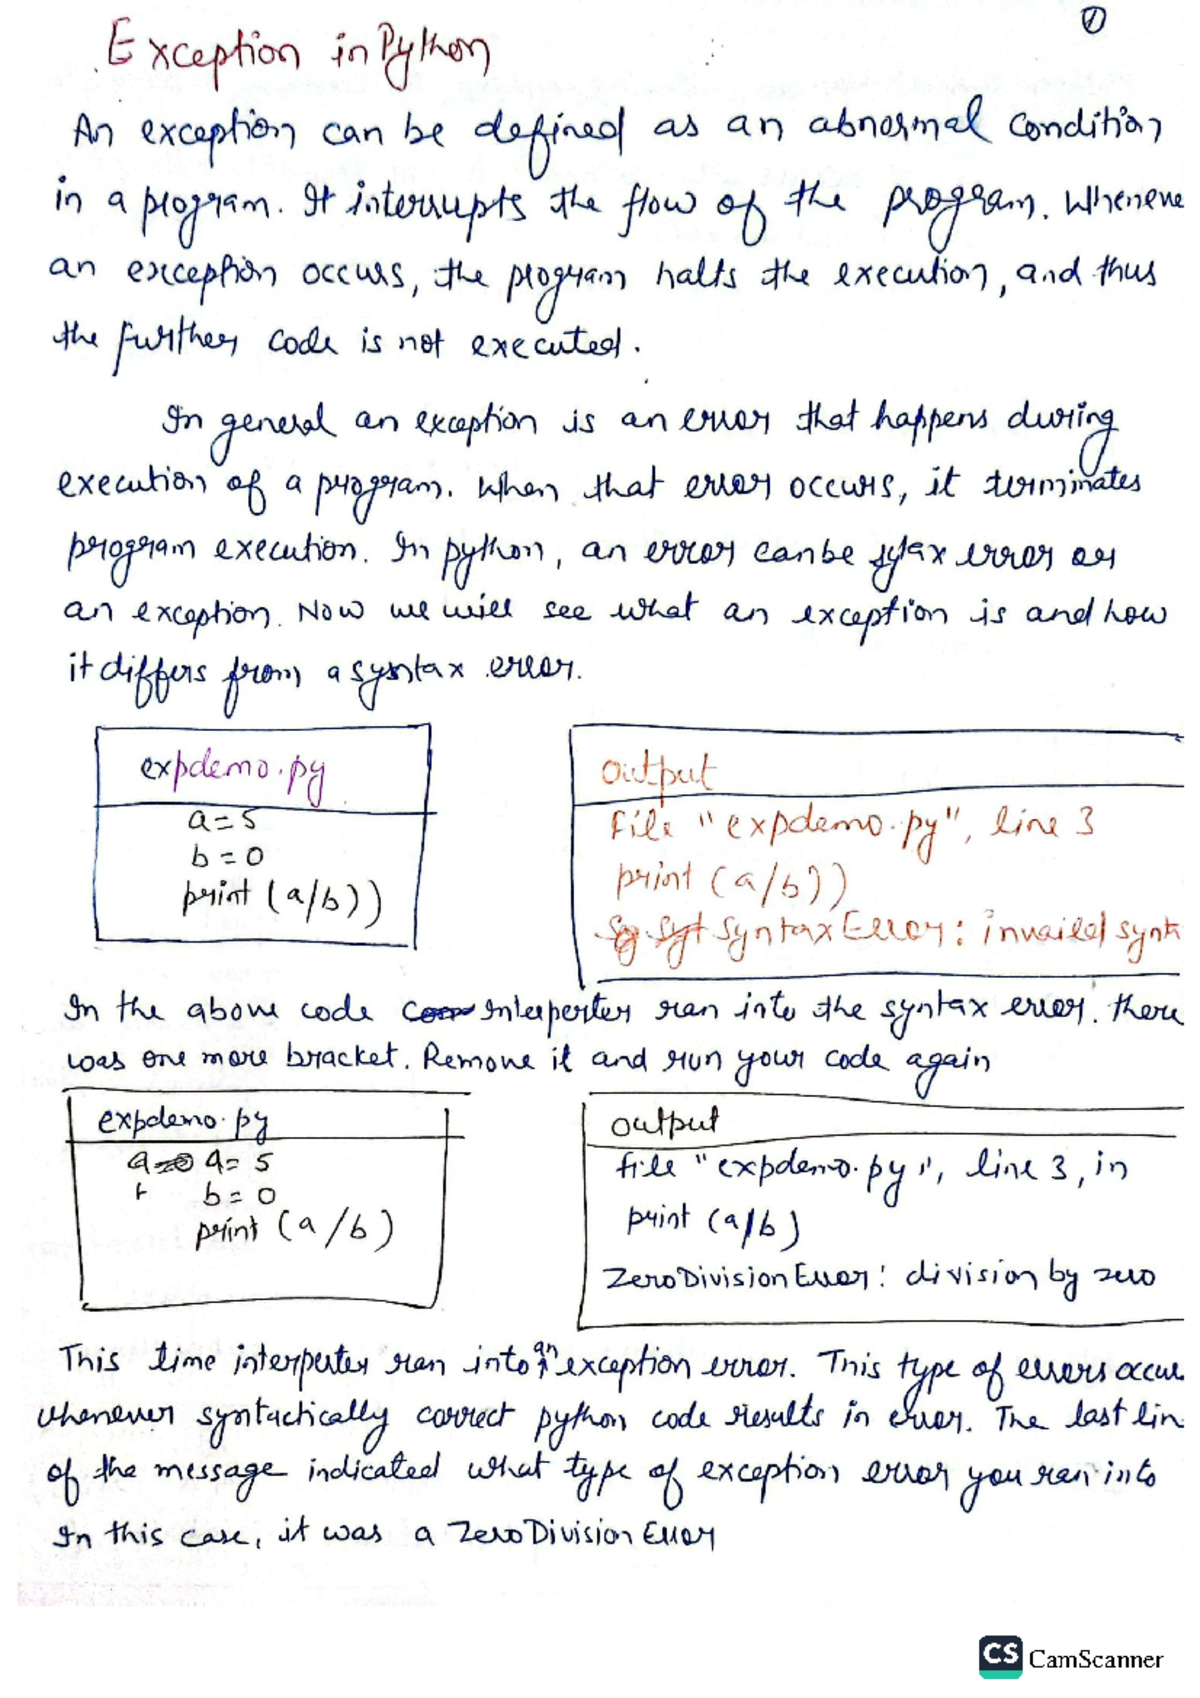 ①
Exception in Python
An exception can be defined as an abnormal condition
in a program. It interrupts the flow of the program. Wheneve
an exception occurs, the program halts the execution, and thus
the further code is not executed.
In general an exception is an error that happens during
execution of a program. When that error occurs, it terminates
program execution. In python, an error can be sytax error or
an exception. Now we will see what an exception is and how
it differs from a syntax error.
expdemo.py
a=5
b=0
print (a/b))
output
File "expdemo.py", line 3
print (a/b))
SyntaxError: invailed synta
In the above code Interperter ran into the syntax error. there
was one more bracket. Remove it and run your code again
expdemo.py
a= 5
b= 0
print (a/b)
output
file "expdemo.py", line 3, in
print (a/b)
ZeroDivisionError: division by zero
This time interperter ran into an exception error. This type of errors occur
whenever syntactically correct python code results in error. The last lin
of the message indicated what type of exception error you ran into
In this case, it was a ZeroDivisionError
CS CamScanner